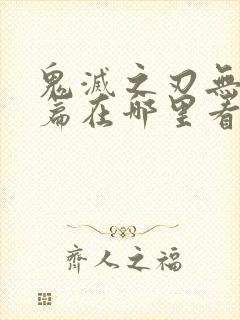 鬼滅之刃無
篇在哪里看
齊人之福